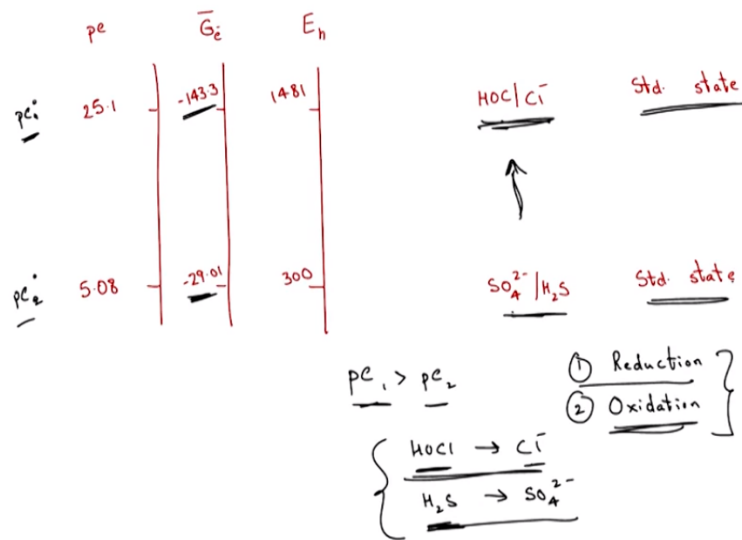 pe G̅ₑ̄ Eₕ
pe₁° 25.1 -143.3 1481 HOC/Cl⁻ Std. state
pe₂° 5.08 -29.01 300 SO₄²⁻/H₂S Std. state
pe₁ > pe₂
① Reduction
② Oxidation
HOCl → Cl⁻
H₂S → SO₄²⁻